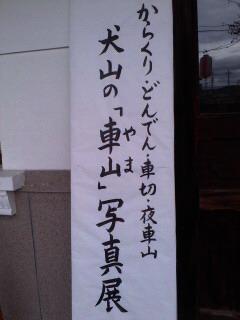 からくり・どんでん・車切・夜車山
犬山の「車山」写真展
やま